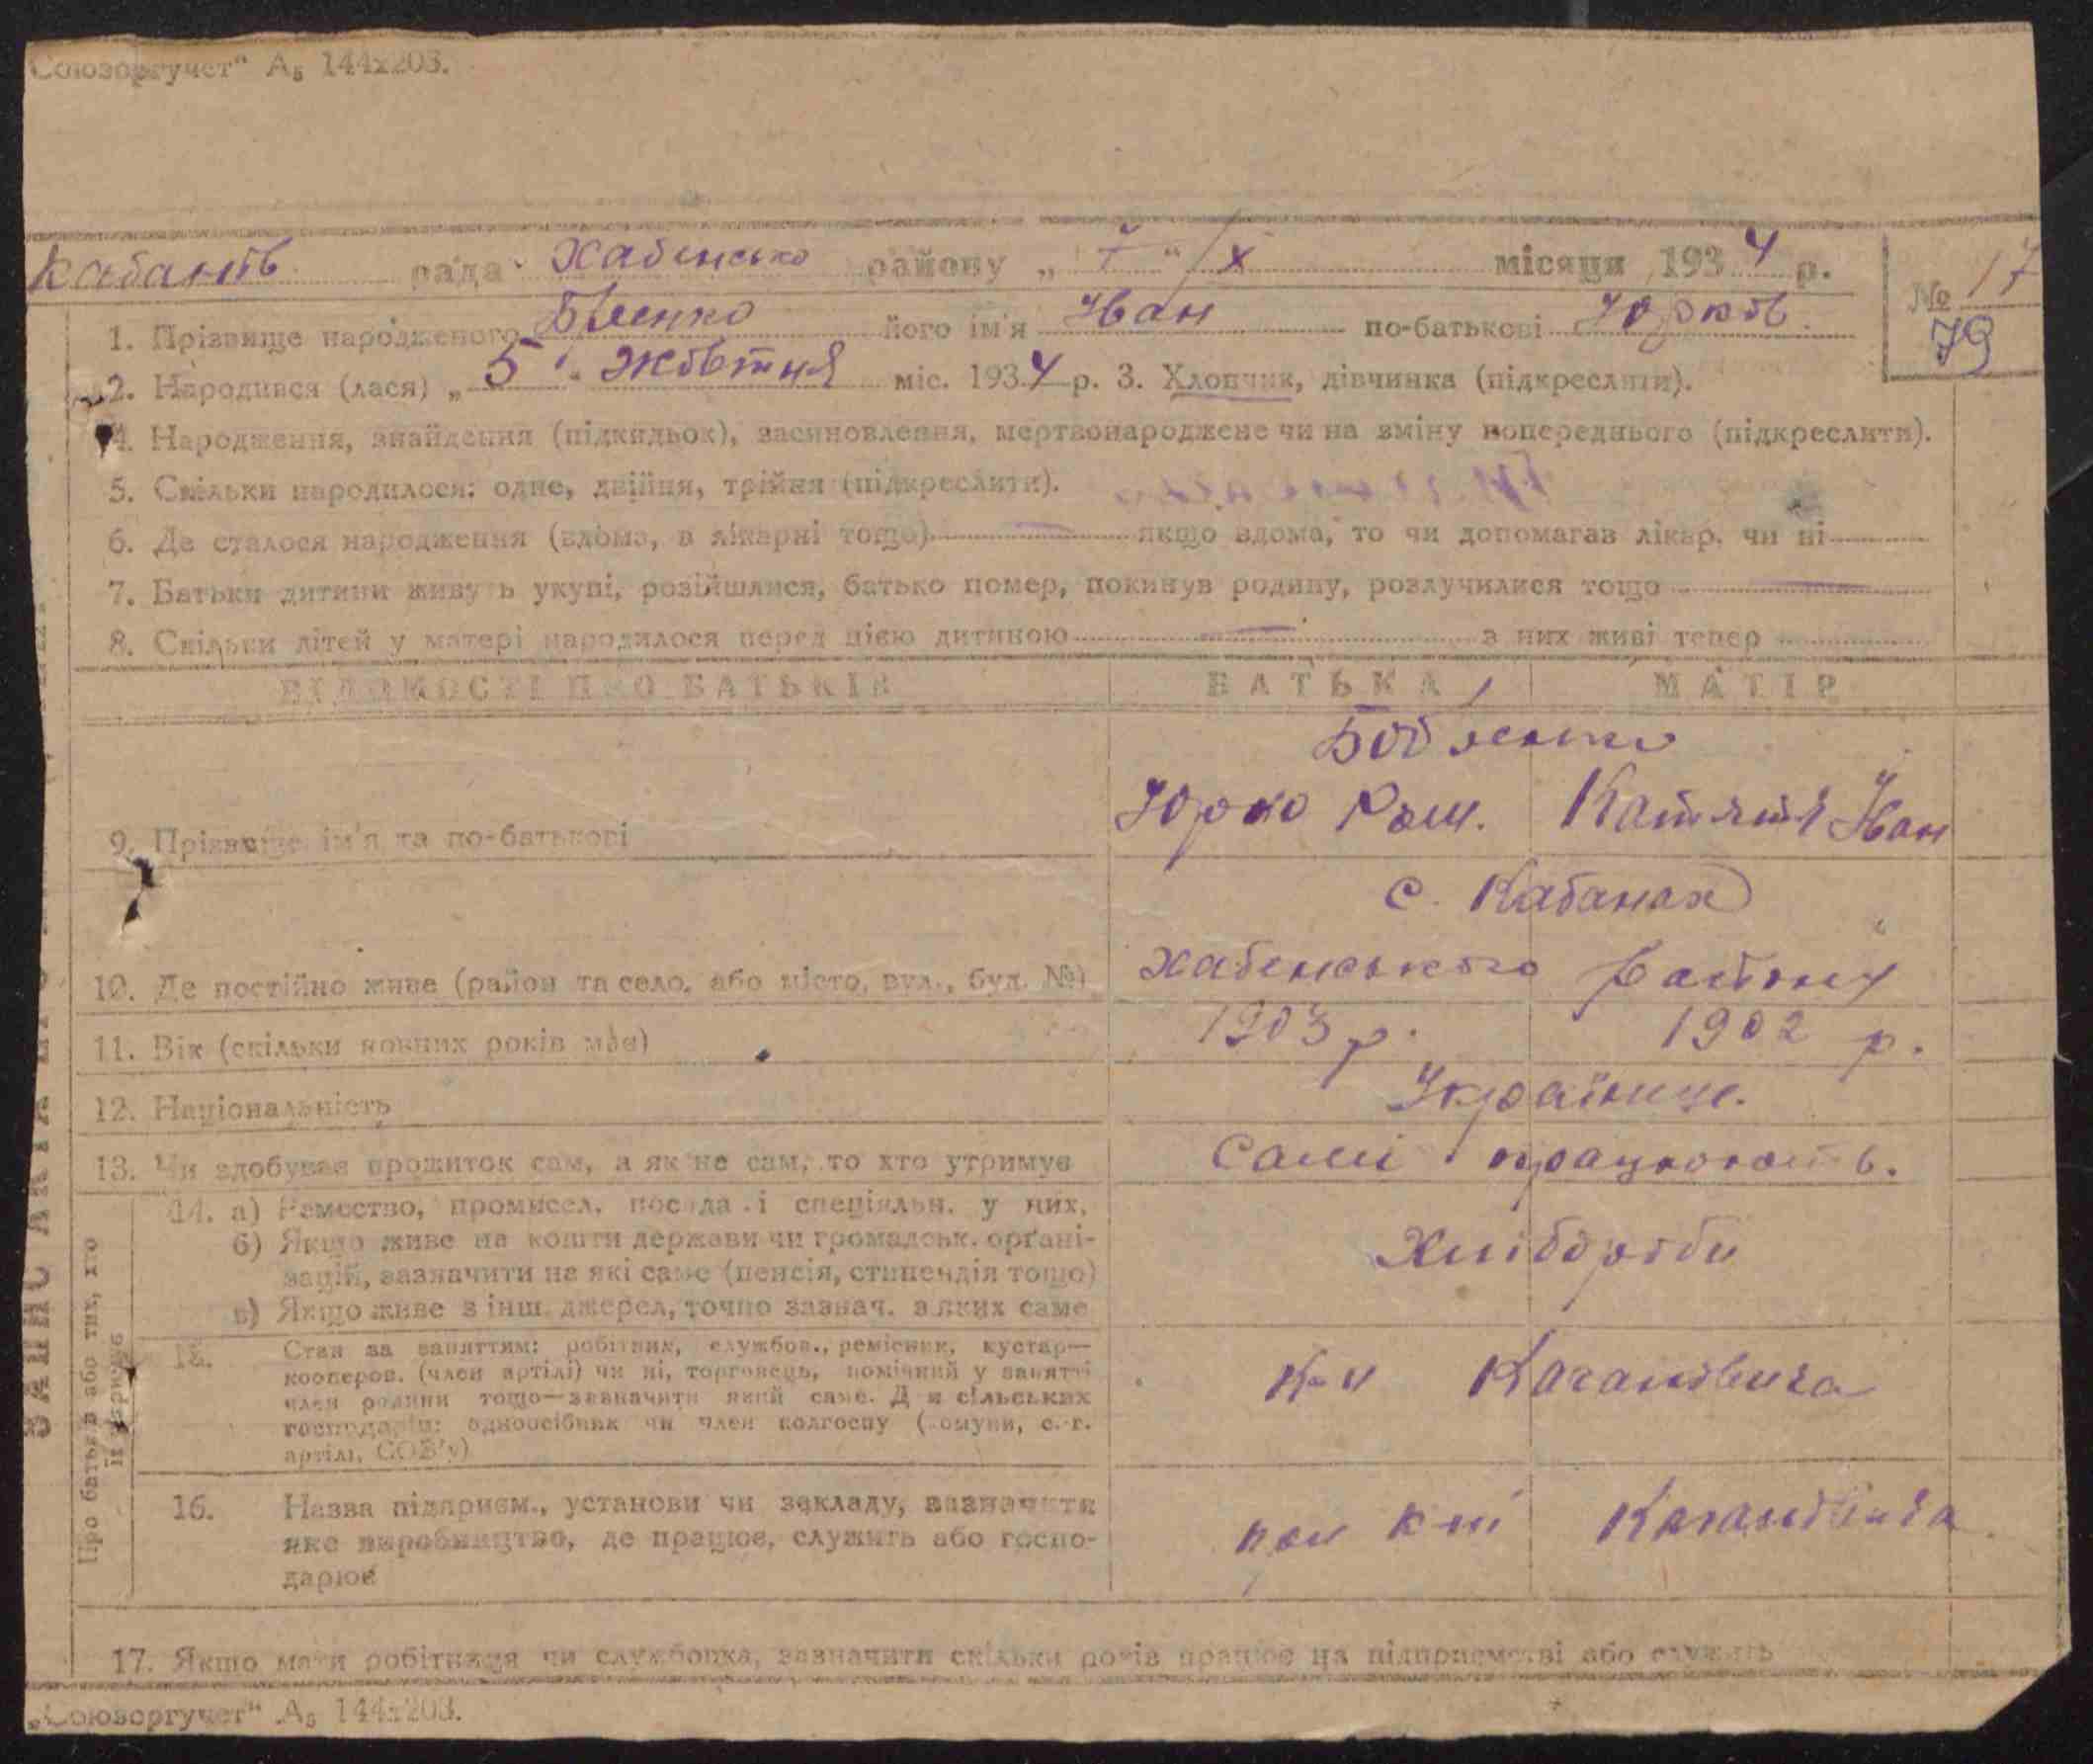 „Союзоргучет" А₅ 144x203.
Кабанів рада Хабенсько району „ 7 " / X місяця 1934 р.
№ 17
79
1. Прізвище народженого його ім'я Іван по-батькові Юрков.
2. Народився (лася) „ 5 " Жовтня міс. 1934 р. 3. Хлопчик, дівчинка (підкреслити).
4. Народження, знайдення (підкидьок), засиновлення, мертвонароджене чи на зміну попереднього (підкреслити).
5. Скільки народилося: одне, двійня, трійня (підкреслити).
6. Де сталося народження (вдома, в лікарні тощо) — якщо вдома, то чи допомагав лікар, чи ні
7. Батьки дитини живуть укупі, розійшлися, батько помер, покинув родину, розлучилися тощо —
8. Скільки дітей у матері народилося перед цією дитиною — з них живі тепер
ВІДОМОСТІ ПРО БАТЬКІВ БАТЬКА МАТІР
9. Прізвище ім'я та по-батькові
Юрко Ром. Катяня Іван
с. Кабанах
10. Де постійно живе (район та село, або місто, вул., буд. №) Хабенського району
11. Вік (скільки повних років має) 1903 р. 1902 р.
12. Національність Українце.
13. Чи здобуває прожиток сам, а як не сам, то хто утримує Самі працюють.
Про батьків або тих, хто
їх утримує
14. а) Ремество, промисел, посада і спеціяльн. у них,
б) Якщо живе на кошти держави чи громадськ. орґані-
зацій, зазначити на які саме (пенсія, стипендія тощо)
в) Якщо живе з інш. джерел, точно зазнач. з яких саме
Хлібороби
15. Стан за заняттям: робітник, службов., ремісник, кустар—
кооперов. (член артілі) чи ні, торговець, помічний у занятті
член родини тощо—зазначити який саме. Для сільських
господарів: одноосібник чи член колгоспу (комуни, с.-г.
артілі, СОЗ'у)
К-п Кагановича
16. Назва підприєм., установи чи закладу, зазначити
яке виробництво, де працює, служить або госпо-
дарює
Кагановича
17. Якщо мати робітниця чи службовка, зазначити скільки років працює на підприємстві або служить
„Союзоргучет" А₅ 144x203.